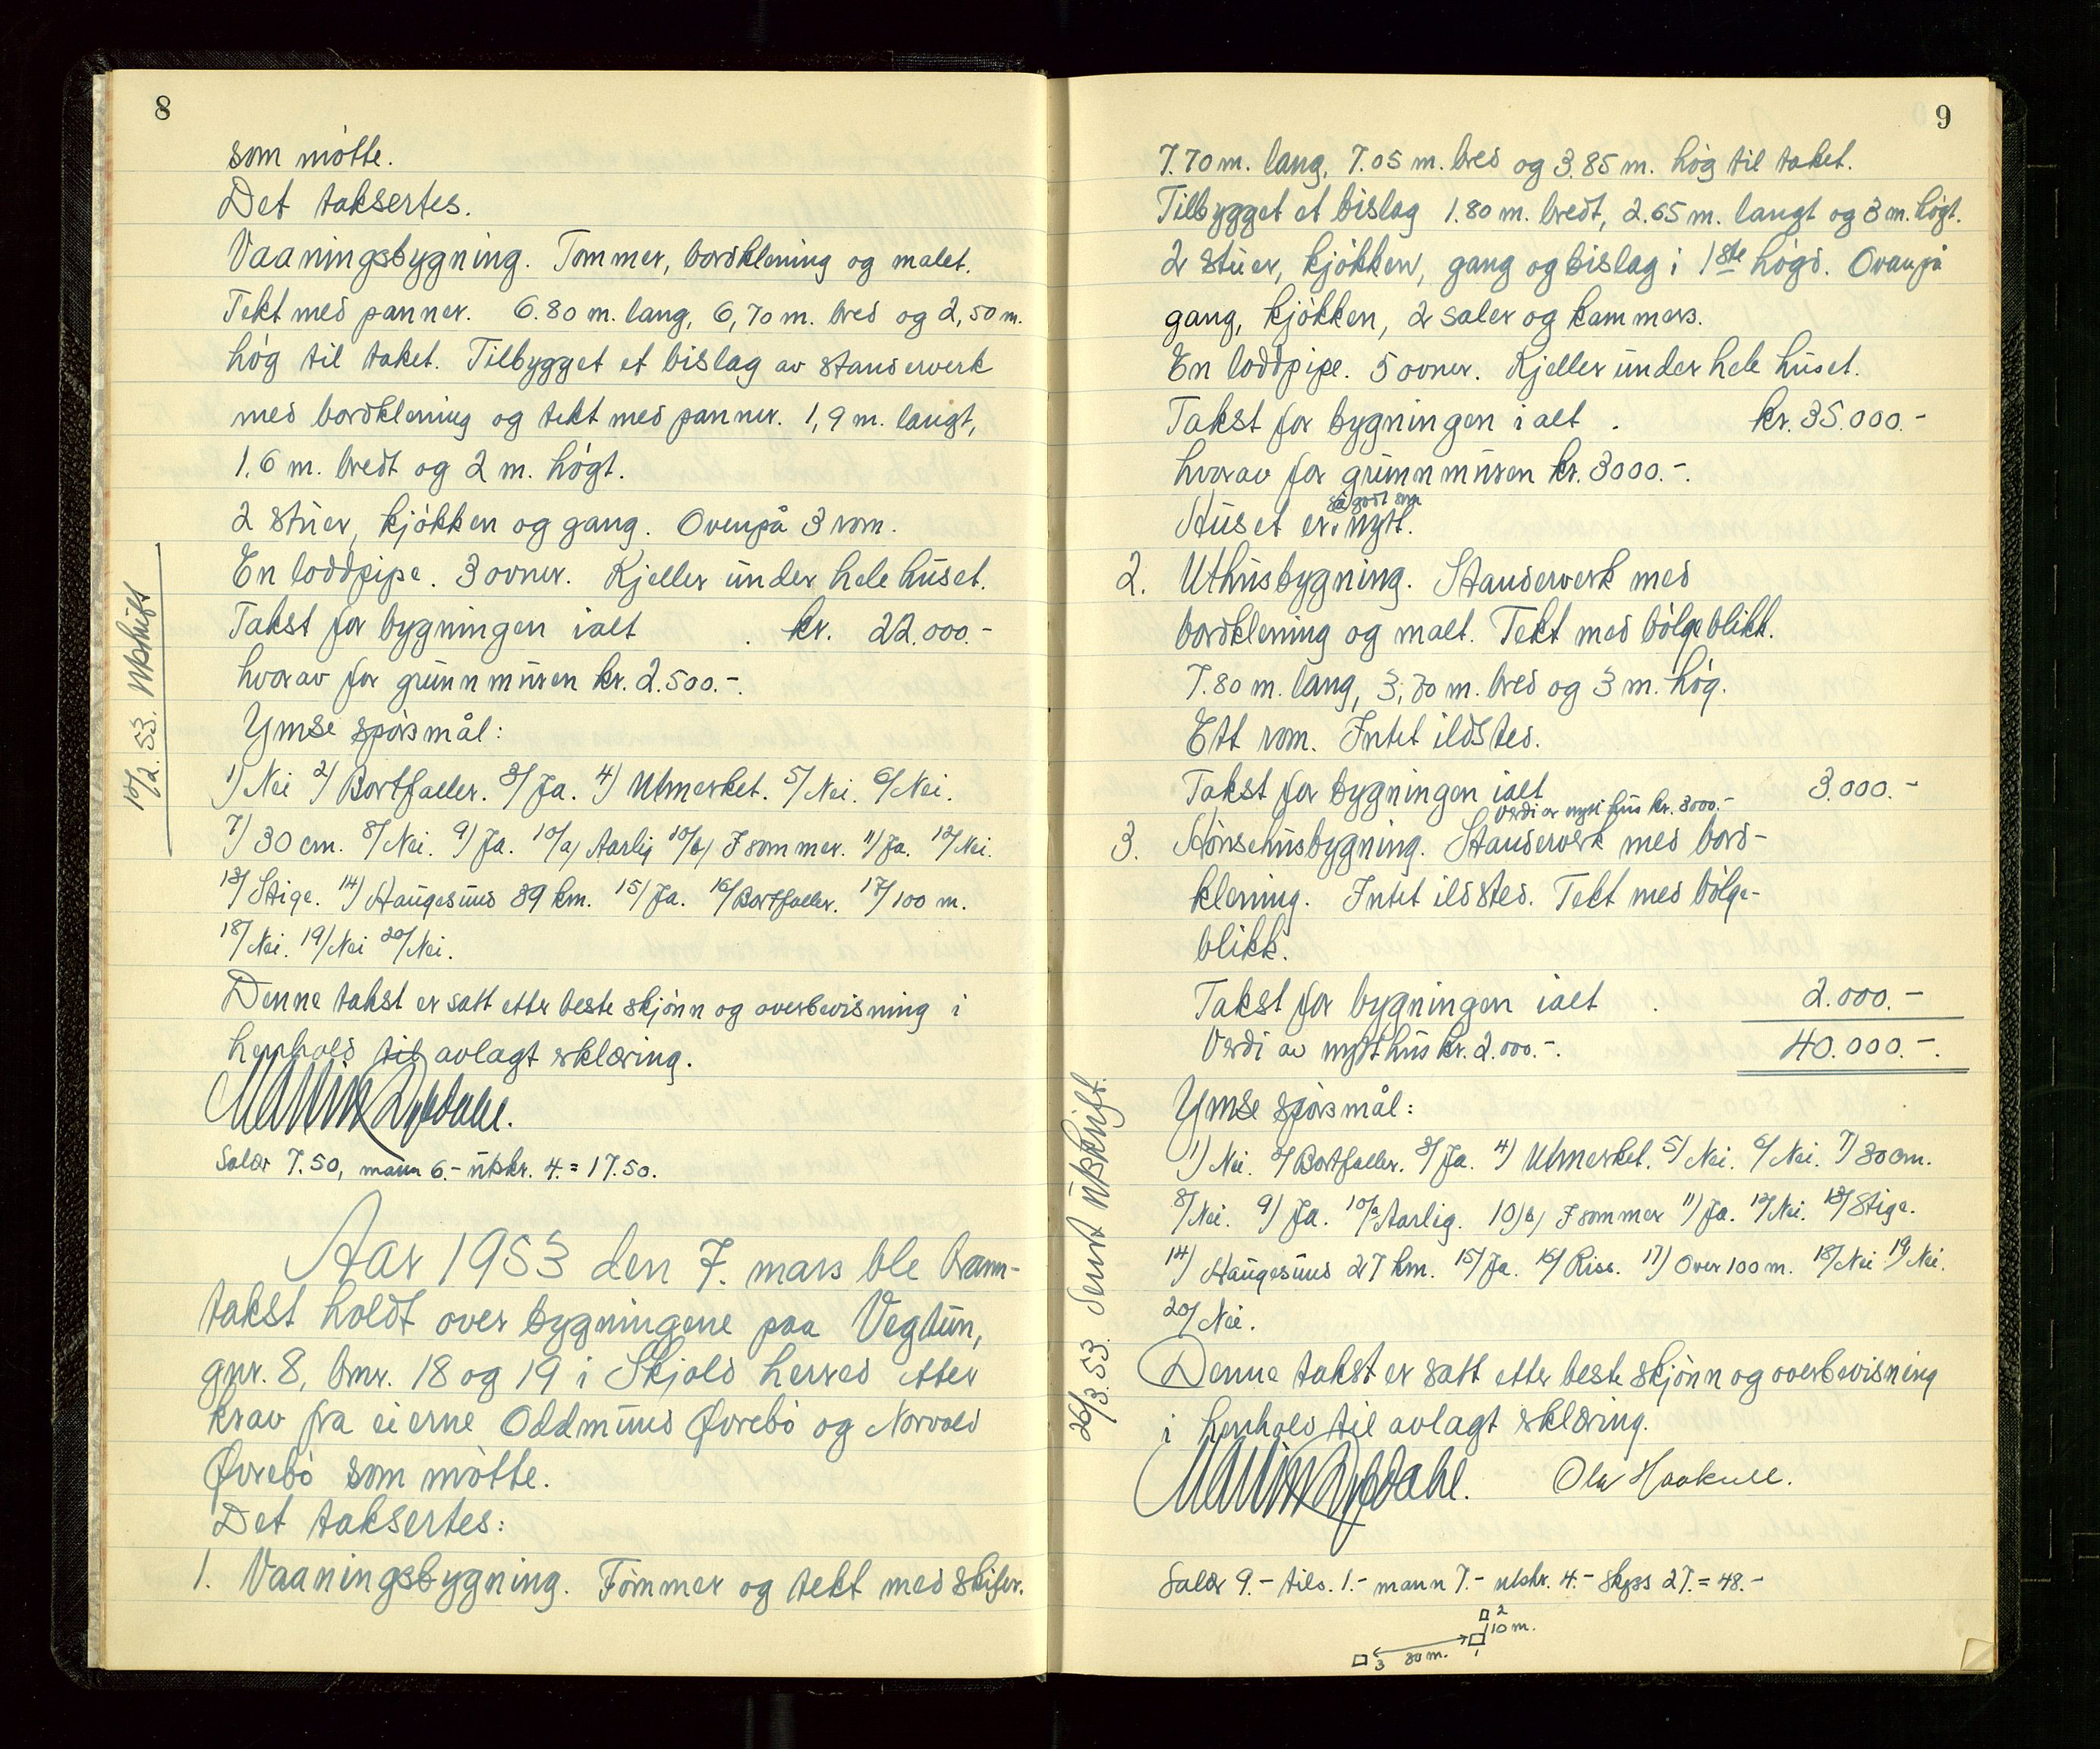 8
som mötte.
Det taksertes.
Vaaningsbygning. Tømmer, bordklening og malet.
Tekt med panner. 6.80 m. lang, 6,70 m. bred og 2,50 m.
hög til taket. Tilbygget et bislag av standerverk
med bordklening og tekt med panner. 1,9 m. langt,
1.6 m. bredt og 2 m. högt.
2 stuer, kjökken og gang. Ovenpå 3 rom.
En loddpipe. 3 ovner. Kjeller under hele huset.
Takst for bygningen ialt . kr. 22.000.-
hvorav for grunnmuren kr. 2.500.-.
Ymse spörsmål:
1) Nei 2) Bortfaller. 3/ Ja. 4) Utmerket. 5/ Nei. 6/ Nei.
7) 30 cm. 8/ Nei. 9) Ja. 10/a) Aarlig 10/b) I sommer. 11/ Ja. 12/ Nei.
13/ Stige. 14) Haugesund 39 km. 15/ Ja. 16/ Bortfaller. 17/ 100 m.
18/ Nei. 19/ Nei 20/ Nei.
Denne takst er satt etter beste skjönn og overbevisning i
henhold til avlagt erklæring.
Martin Dybdahl.
Salær 7.50, mann 6.- utskr. 4. = 17.50.
Aar 1953 den 7. mars ble brann-
takst holdt over bygningene paa Vegtun,
gnr. 8, bnr. 18 og 19 i Skjold herred etter
krav fra eierne Oddmund Øvrebö og Norvald
Øvrebö som mötte.
Det taksertes:
1. Vaaningsbygning. Tömmer og tekt med skifer.
12/2. 53. utskrift
9
7.70 m. lang, 7.05 m. bred og 3.85 m. hög til taket.
Tilbygget et bislag 1.80 m. bredt, 2.65 m. langt og 3 m. högt.
2 stuer, kjökken, gang og bislag i 1ste högd. Ovanpå
gang, kjökken, 2 saler og kammers.
En loddpipe. 5 ovner. Kjeller under hele huset.
Takst for bygningen ialt . kr. 35.000.-
hvorav for grunnmuren kr. 3000.-.
så godt som
Huset er nytt.
2. Uthusbygning. Standerverk med
bordklening og malt. Tekt med bölgeblikk.
7.80 m. lang, 3,70 m. bred og 3 m. hög.
Ett rom. Intet ildsted.
Takst for bygningen ialt 3.000.-
Verdi av nytt hus kr. 3000.-
3. Hönsehusbygning. Standerverk med bord-
klening. Intet ildsted. Tekt med bölge-
blikk.
Takst for bygningen ialt . 2.000.-
Verdi av nytt hus kr. 2.000.-. 40.000.-.
Ymse spörsmål:
1) Nei. 2/ Bortfaller. 3/ Ja. 4) Utmerket. 5/ Nei. 6/ Nei. 7) 30 cm.
8/ Nei. 9) Ja. 10/a Aarlig. 10/b) I sommer 11) Ja. 12/ Nei. 13/ Stige.
14) Haugesund 27 km. 15/ Ja. 16/ Risc. 17) Over 100 m. 18/ Nei 19) Nei.
20/ Nei.
Denne takst er satt etter beste skjönn og overbevisning
i henhold til avlagt erklæring.
Martin Dybdahl. Ola Haakull.
Salær 9.- tils. 1.- mann 7.- utskr. 4.- skyss 27. = 48.-
2
10 m.
3 80 m. 1
26/3. 53. Sendt utskrift.